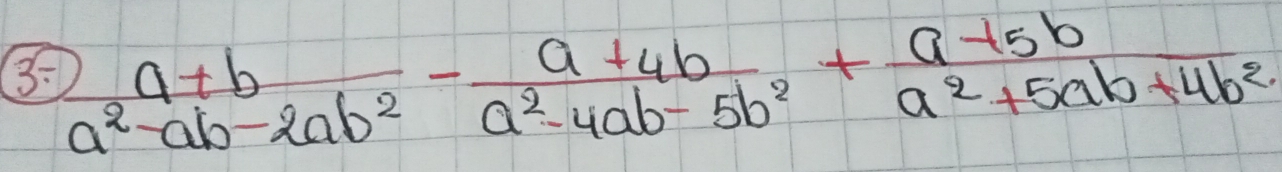 3÷) \frac{a+b}{a^2-ab-2ab^2} - \frac{a+4b}{a^2-4ab-5b^2} + \frac{a+5b}{a^2+5ab+4b^2}.